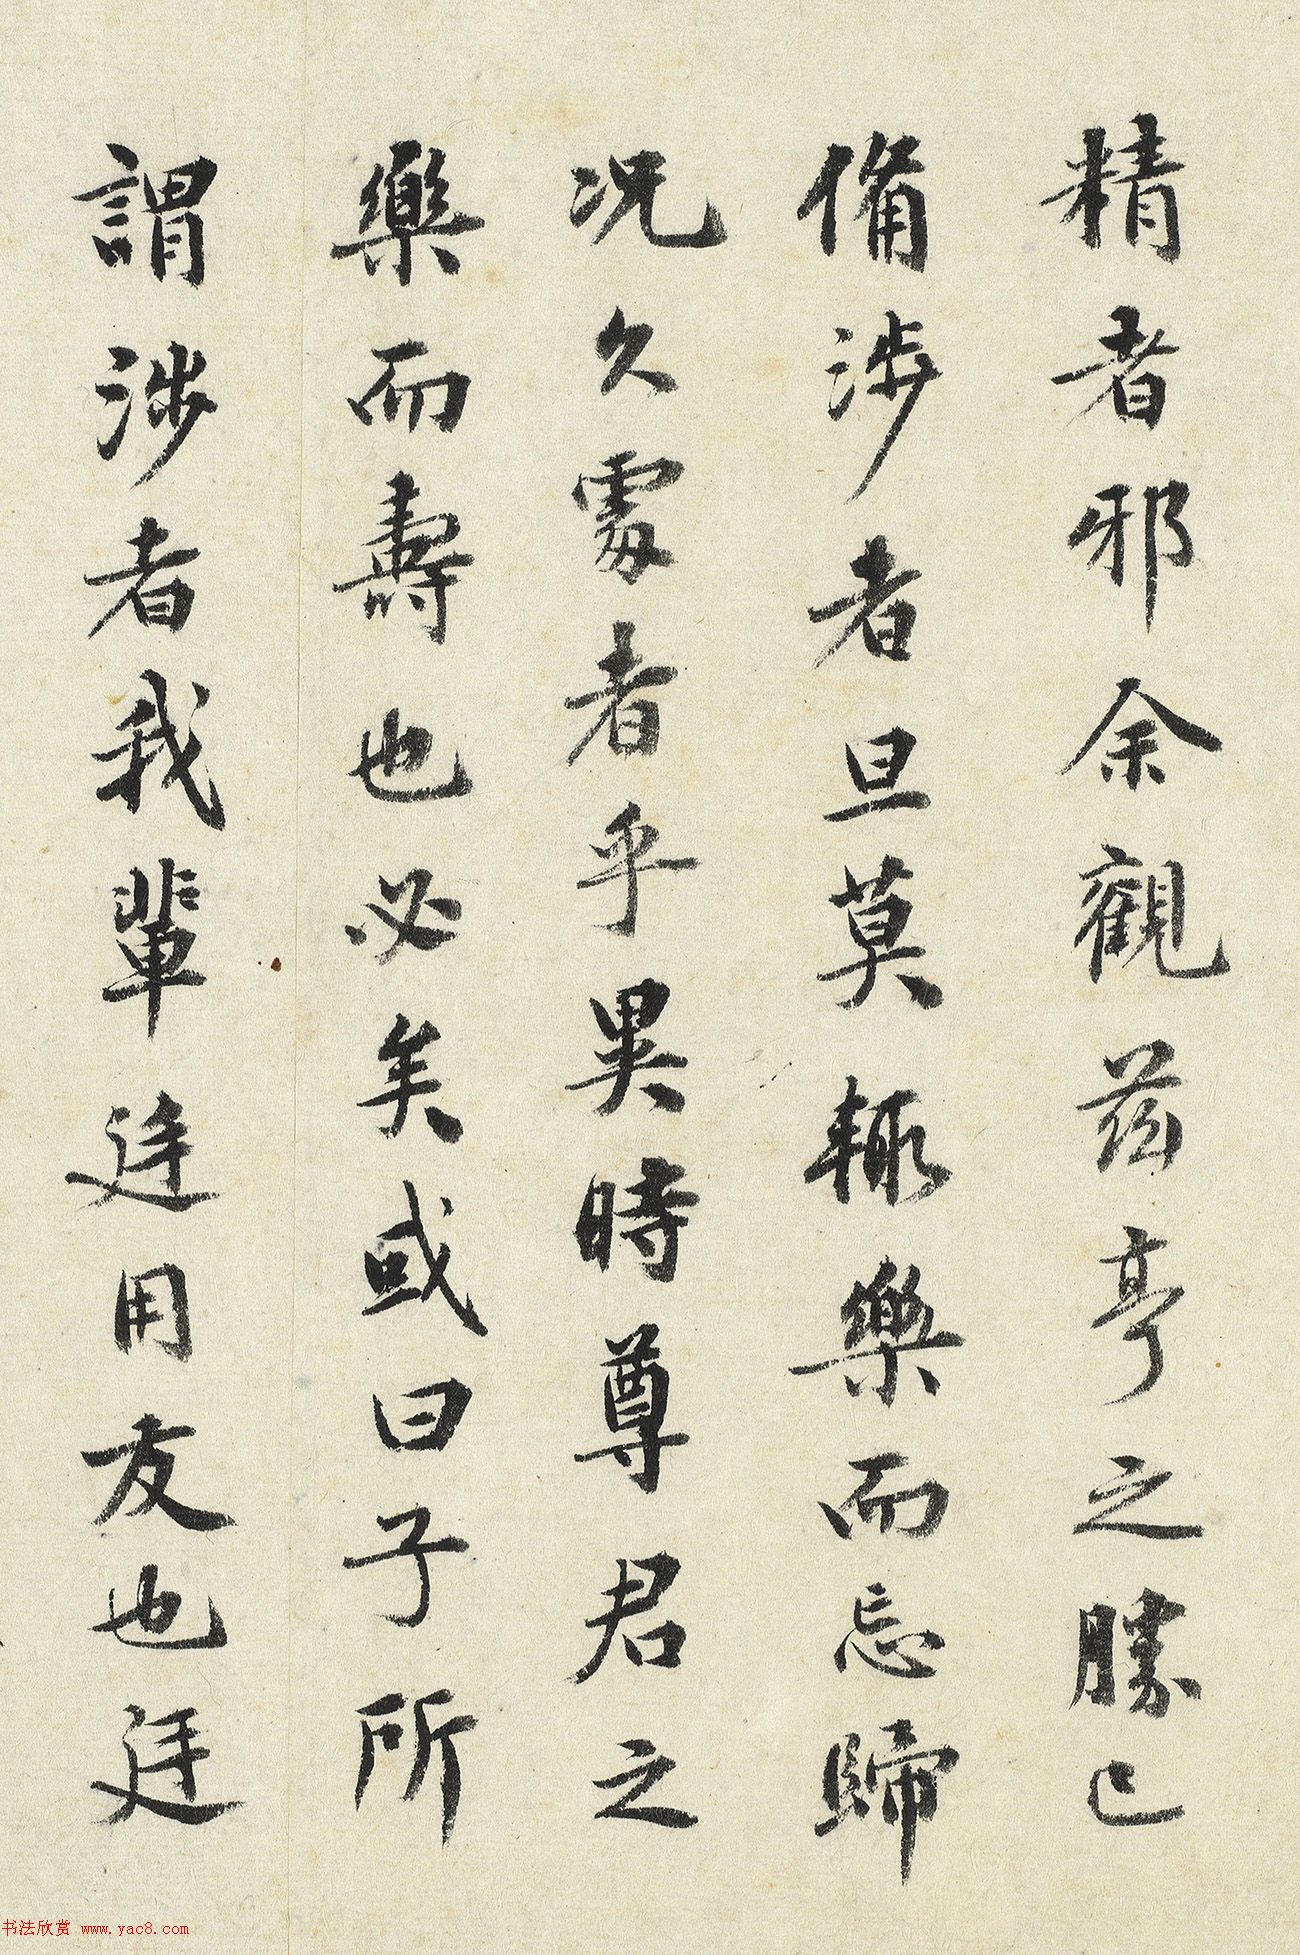 精者邪余觀茲亭之勝已
備涉者旦莫輒樂而忘歸
况久處者乎異時尊君之
樂而壽也必矣或曰子所
謂涉者我輩廷用友也廷
书法欣赏 www.yac8.com